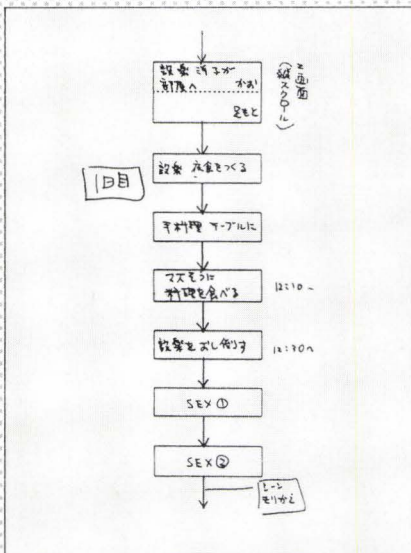 設楽 洋子が かお
部屋へ
足もと
2画面
(縦スクロール)
1日目
設楽 夜食をつくる
手料理 テーブルに
マズそうに
料理を食べる
12:10〜
設楽をおし倒す
12:30〜
SEX①
SEX②
シーン
きりかえ